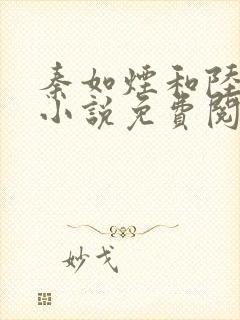 秦如煙和陸
小說免費閱
妙戈